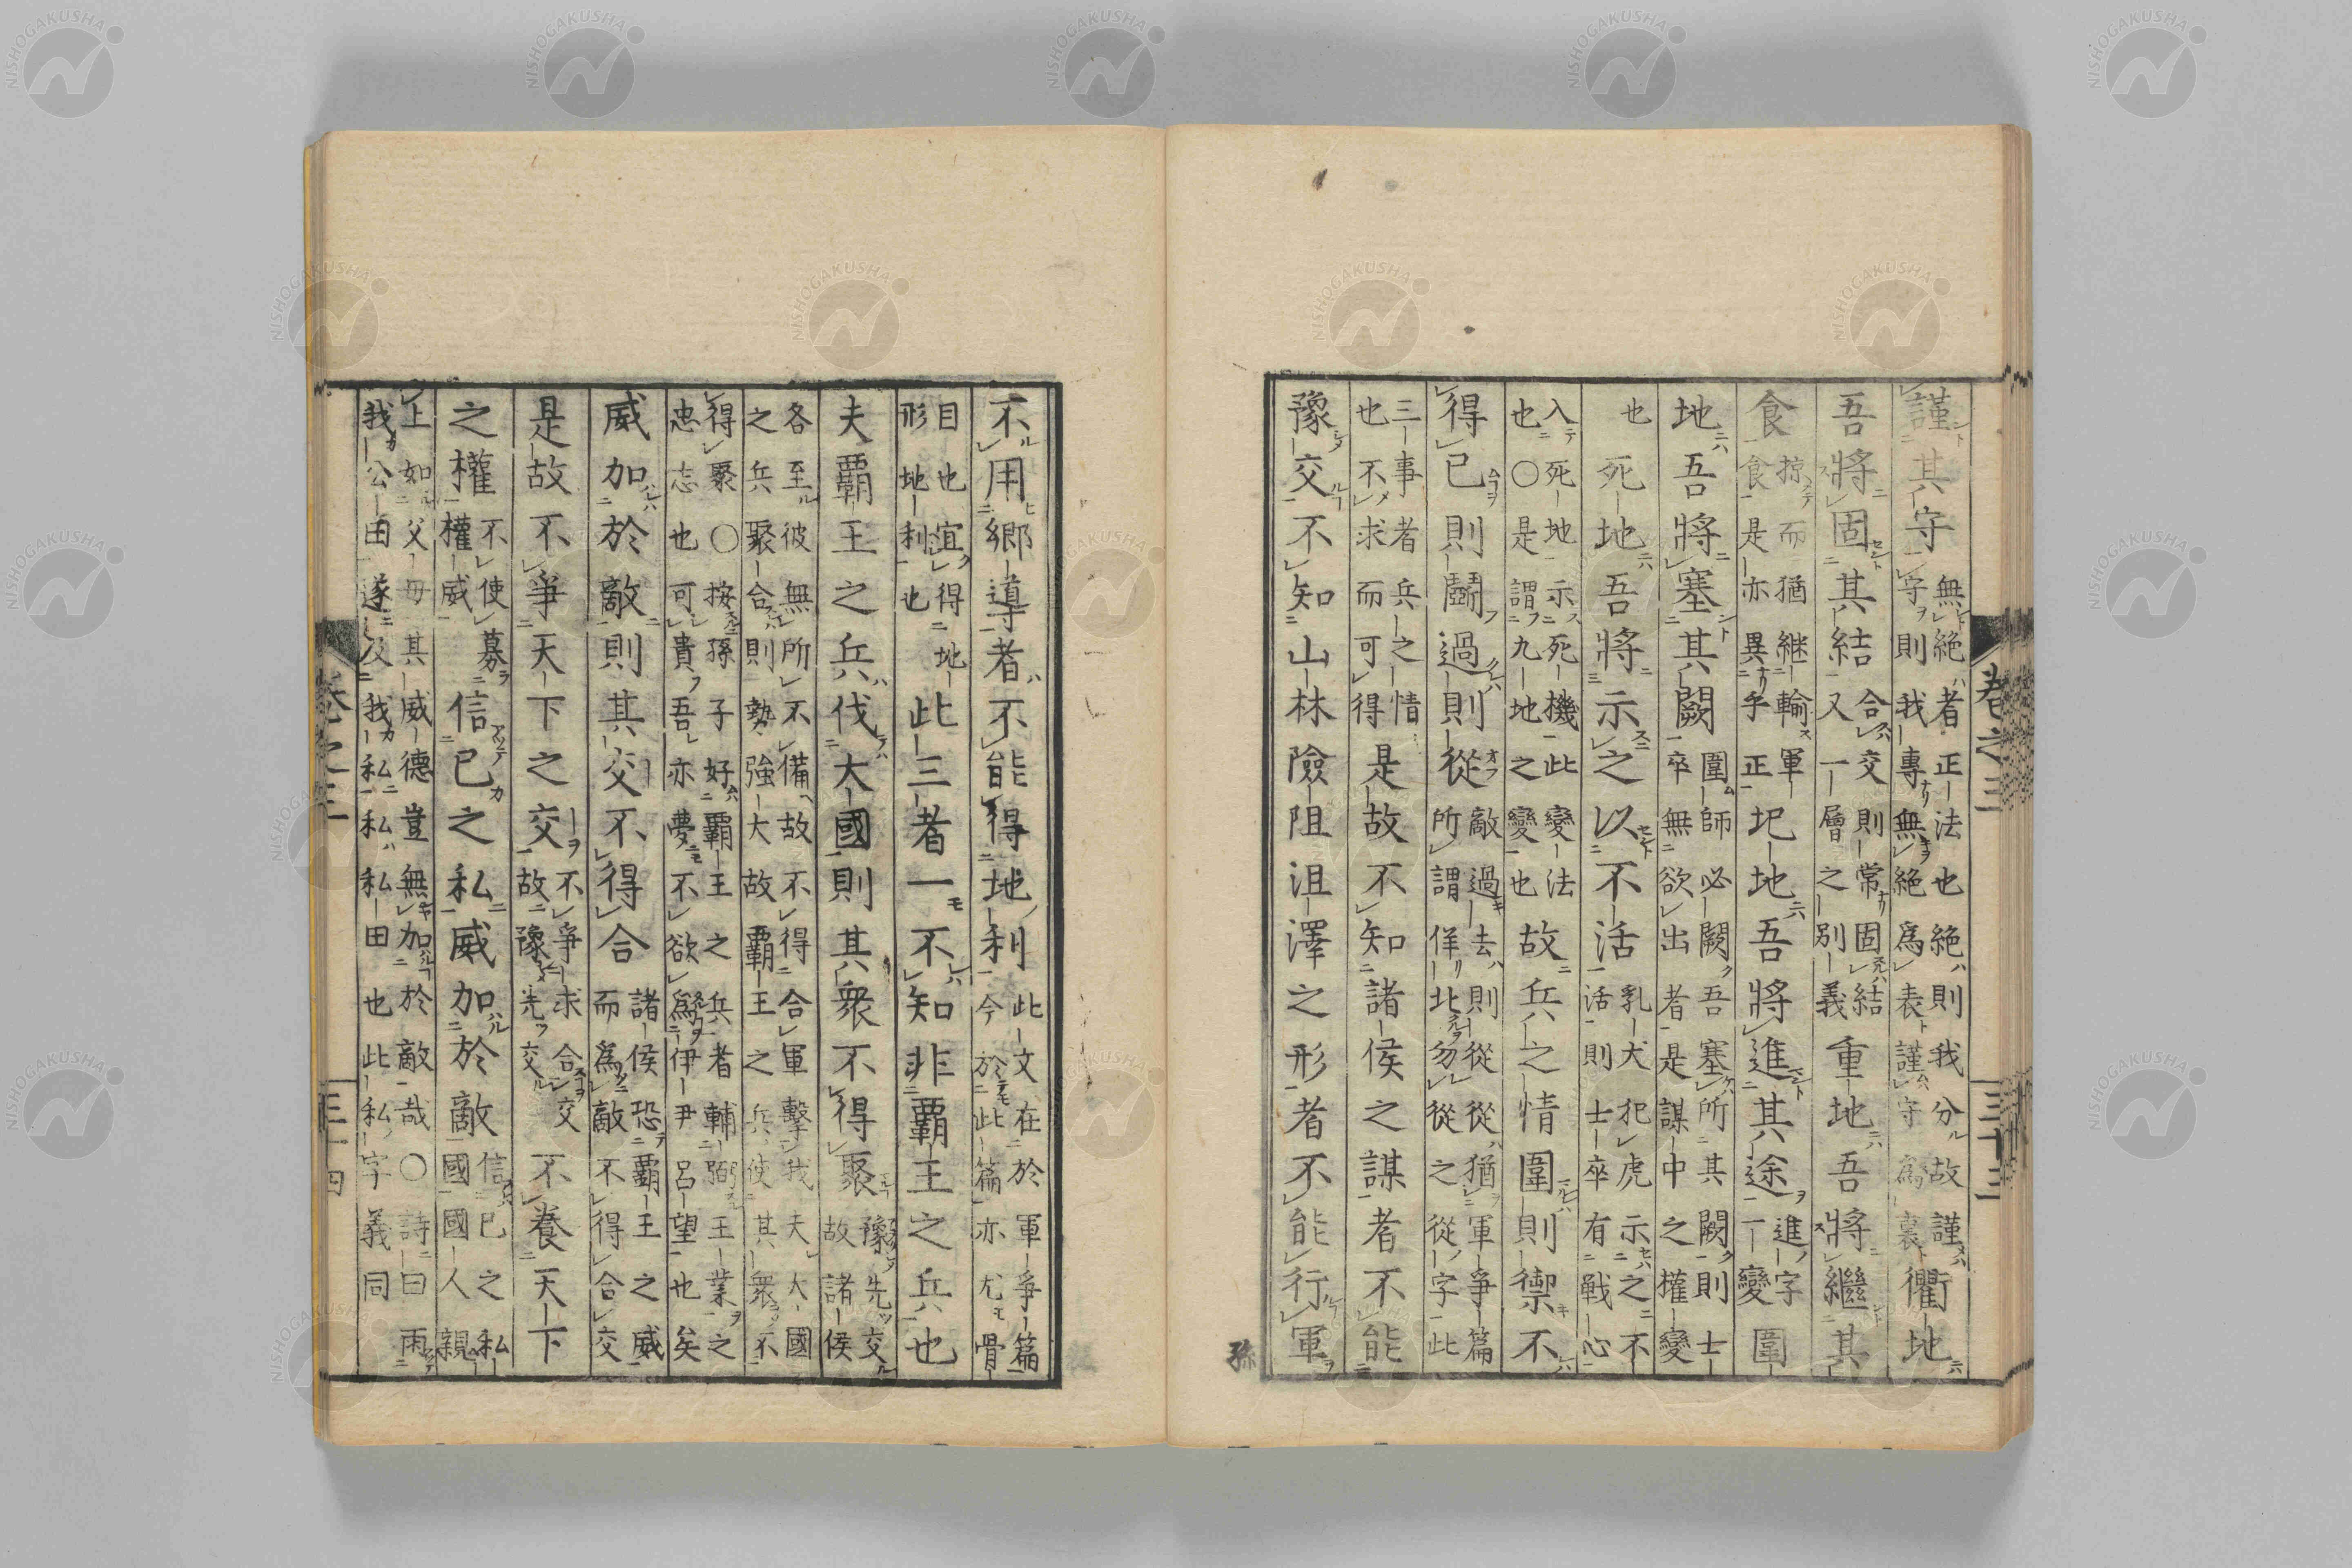 卷之三　三十三
謹其守無絕者正法也絕則我分故謹守則我專無絕爲表謹守爲裏衢地
吾將固其結合交則常固結又一層之別義重地吾將繼其
食掠而猶継輸軍食是亦異乎正圯地吾將進其途進字一變圍
地吾將塞其闕圍師必闕吾塞所其闕則士卒無欲出者是謀中之權變
也死地吾將示之以不活乳犬犯虎示之不活則士卒有戰心
入死地示死機此變法也〇是謂九地之變也故兵之情圍則禦不
得已則鬪過則從敵過去則從從猶軍爭篇所謂佯北勿從之從字此
三事者兵之情也不求而可得是故不知諸侯之謀者不能
豫交不知山林險阻沮澤之形者不能行軍
孫
不用鄉導者不能得地利此文在於軍爭篇今於此篇亦尤骨
目也宜得地形地利也此三者一不知非霸王之兵也
夫霸王之兵伐大國則其衆不得聚豫先交故諸侯
各至彼無所不備故不得合軍擊我夫大國之兵聚合則勢強大故霸王之兵使其衆不
得聚〇按孫子好霸王之兵者輔弼王業之忠志也可貴吾亦夢不欲爲伊尹呂望也矣
威加於敵則其交不得合諸侯恐霸王之威而爲敵不得合交
是故不爭天下之交不爭求合交故豫先交不養天下
之權不使募權威信己之私威加於敵信己之私國國人親
上如父母其威德豈無加於敵哉〇詩曰雨我公田遂及我私私私田也此私字義同
卷之三　三十四